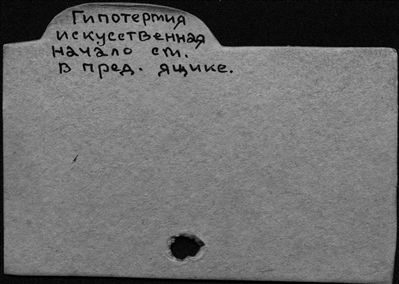 Гипотермия
искусственная
начало см.
в пред. ящике.